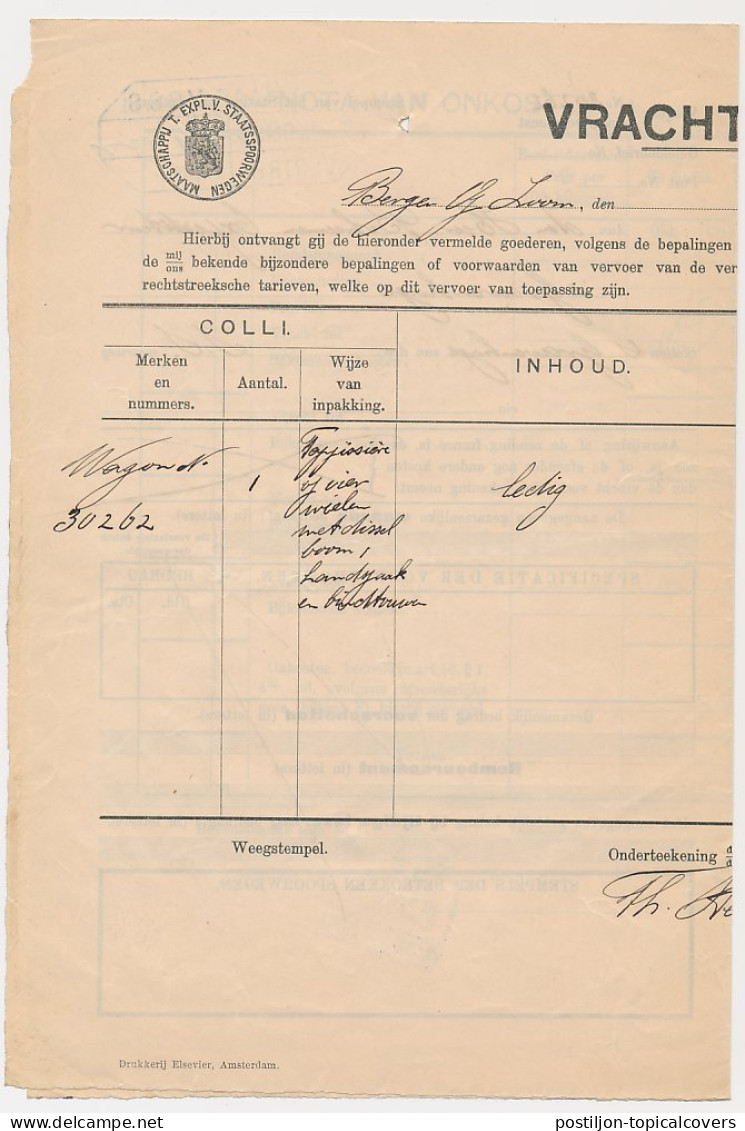 MAATSCHAPPIJ T. EXPL. V. STAATSSPOORWEGEN
VRACHT
Bergen Op Zoom, den
Hierbij ontvangt gij de hieronder vermelde goederen, volgens de bepalingen
de mij/ons bekende bijzondere bepalingen of voorwaarden van vervoer van de ver
rechtstreeksche tarieven, welke op dit vervoer van toepassing zijn.
COLLI.
INHOUD.
Merken
en
nummers.
Aantal.
Wijze
van
inpakking.
Wagon No
30262
1
Tapissière
op vier
wielen
met dissel
boom,
en bindtouwen
ledig
Weegstempel.
Onderteekening
Th.
Drukkerij Elsevier, Amsterdam.
postiljon-topicalcovers